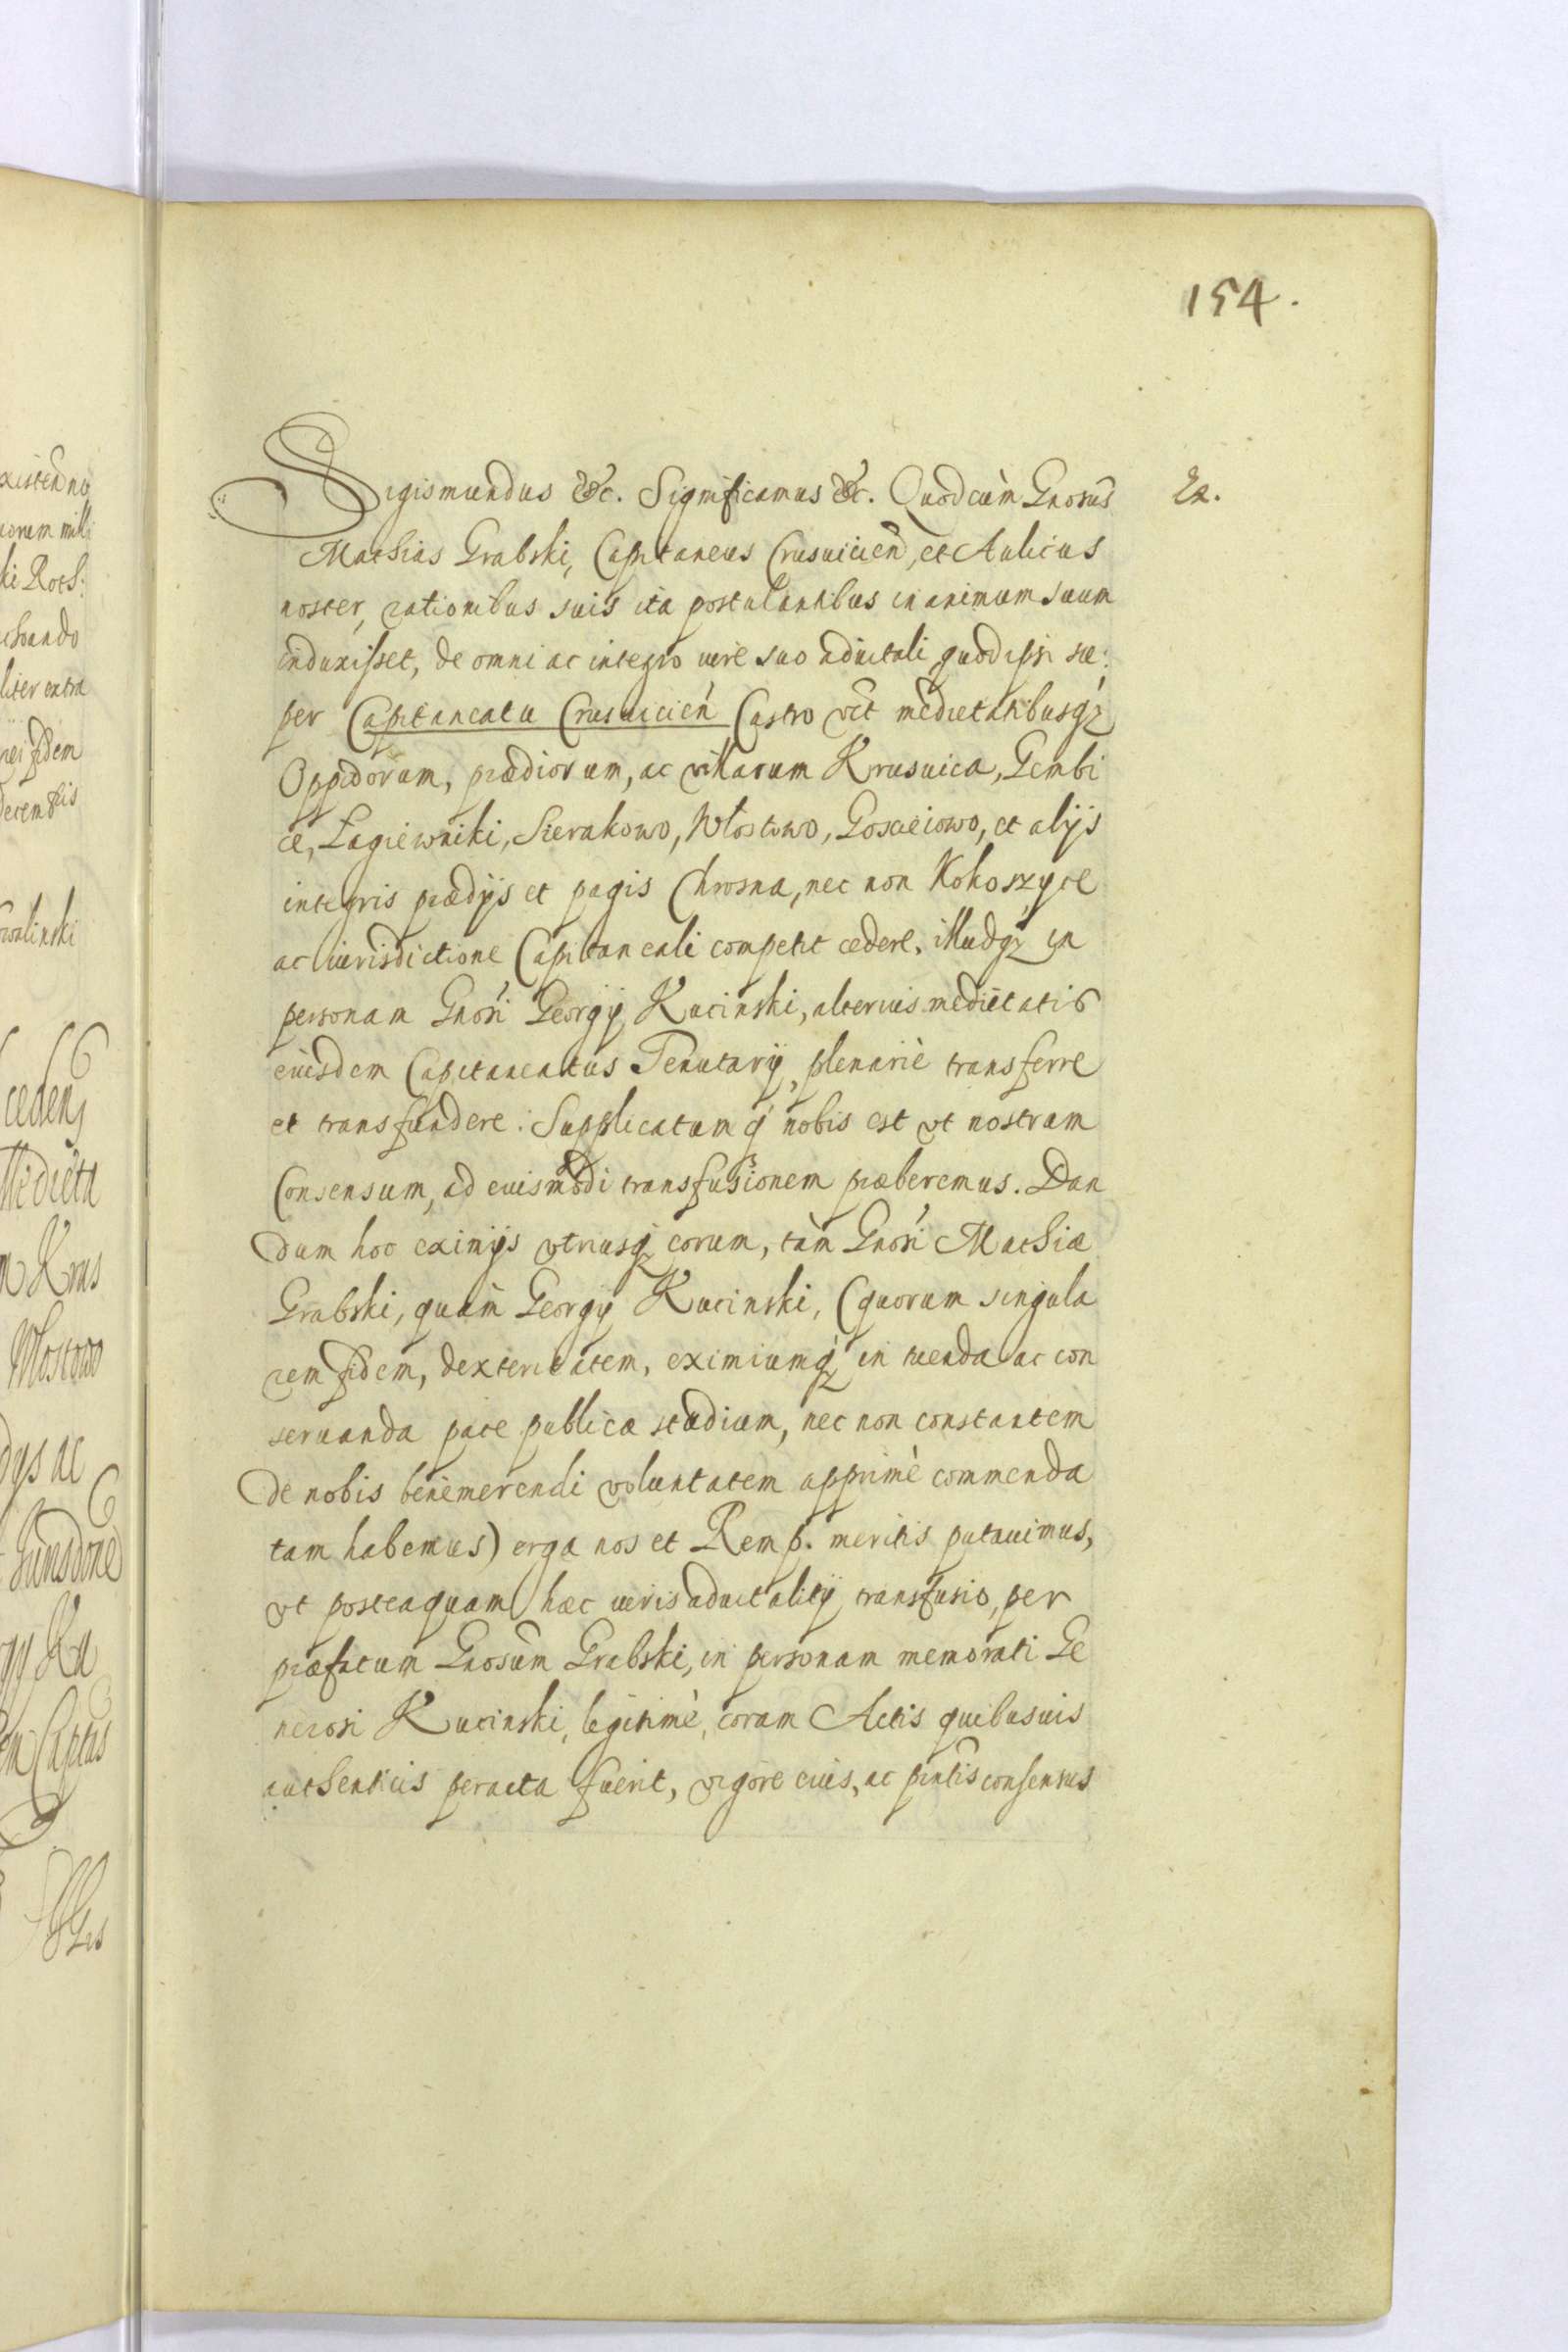 154.
Sigismundus &c. Significamus &c. Quod cùm Gnosus
Mathias Grabski, Capitaneus Crusuicien, et Aulicus
noster, rationibus suis ita postulantibus in animum suum
induxisset, de omni ac integro iure suo aduitali quod ipsi su:
per Capitaneatu Crusuicien Castro vct medietatibusq
Oppidorum, prædiorum, ac villarum Krusuica, Gembi
ce, Łagiewniki, Sierakowo, Włostowo, Goscieiowo, et alijs
integris prædijs et pagis Chrosna, nec non Kokoszyce
ac iurisdictione Capitaneali competit cedere, illudq in
personam Gnosi Georgij Kucinski, alterius medietatis
eiusdem Capitaneatus Tenutarij, plenariè transferre
et transfundere: Supplicatumq nobis est vt nostram
Consensum, ad euismodi transfusionem præberemus. Dan
dum hoc eximijs vtriusq eorum, tàm Gnosi Mathiæ
Grabski, quàm Georgij Kucinski, (quorum singula
rem fidem, dexteritatem, eximiumq in tuenda ac con
seruanda pace publica studium, nec non constantem
de nobis benemerendi voluntatem apprimè commenda
tam habemus) erga nos et Remp. meritis putauimus,
vt posteaquam hæc iuris aduitalitij transfusio, per
præfatum Gnosum Grabski, in personam memorati Ge
nerosi Kucinski, legitimè, coram Actis quibusuis
authenticis peracta fuerit, vigore eius, ac pntis consensus
existen no
uorum mill
ki Roth:
liter extra
rei fidem
ceden
Medieta
Włostowo
dys ac